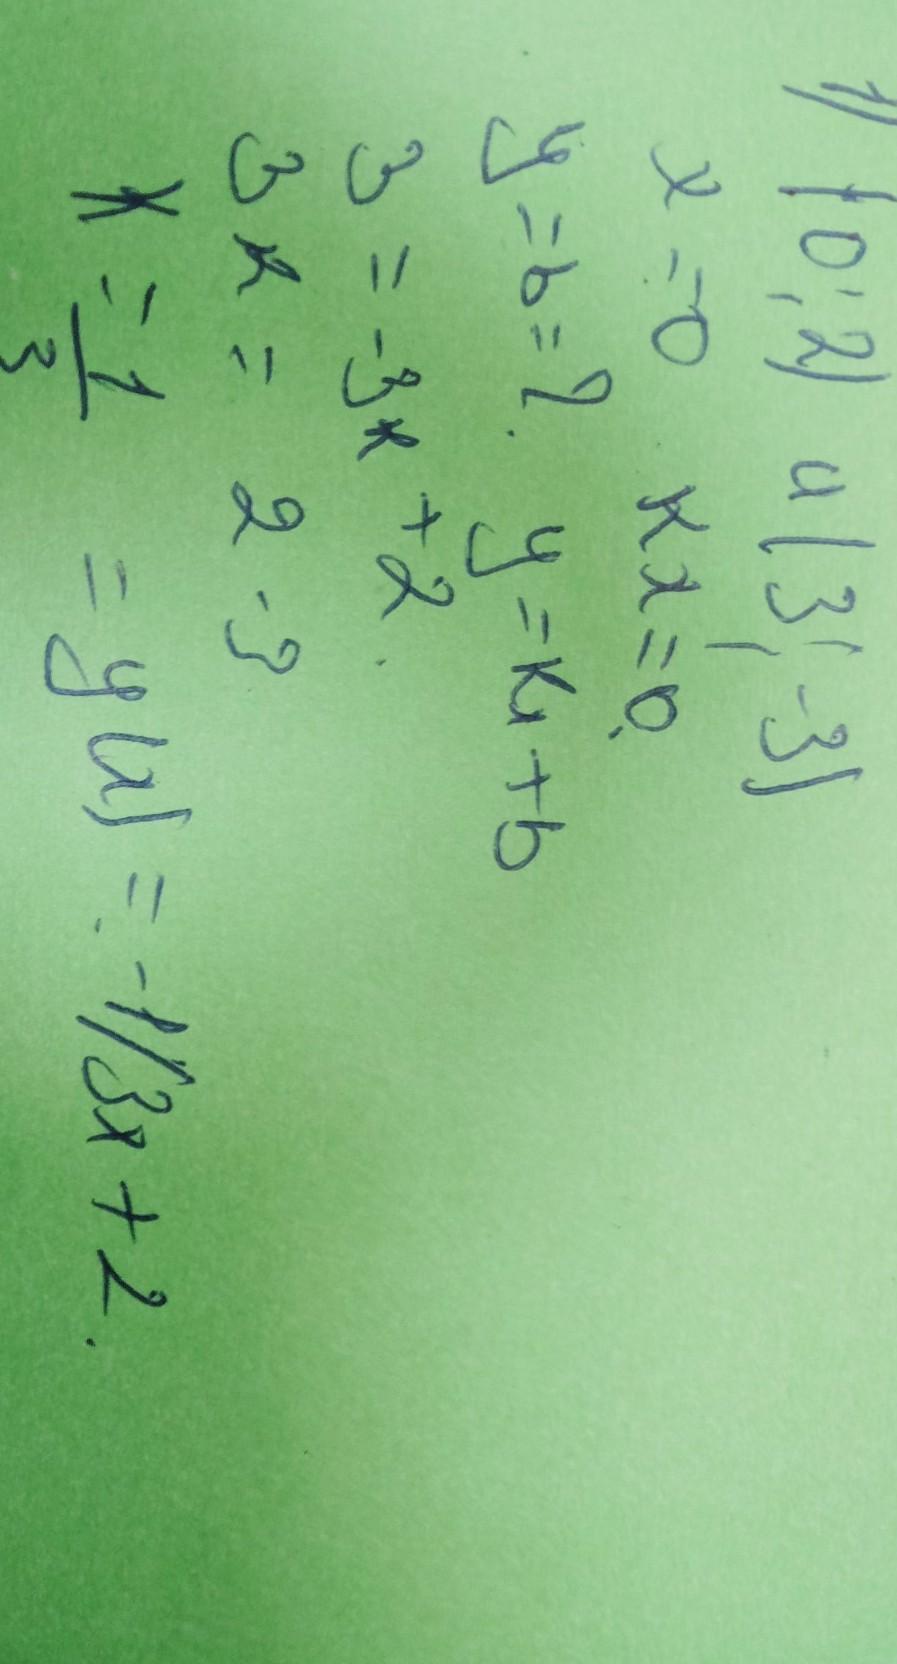 1) (0; 2) и (3; -3)
x = 0 кx = 0.
y = b = 2. y = кx + b
3 = -3к + 2.
3к = 2 - 3
к = -1/3 = y(x) = -1/3x + 2.